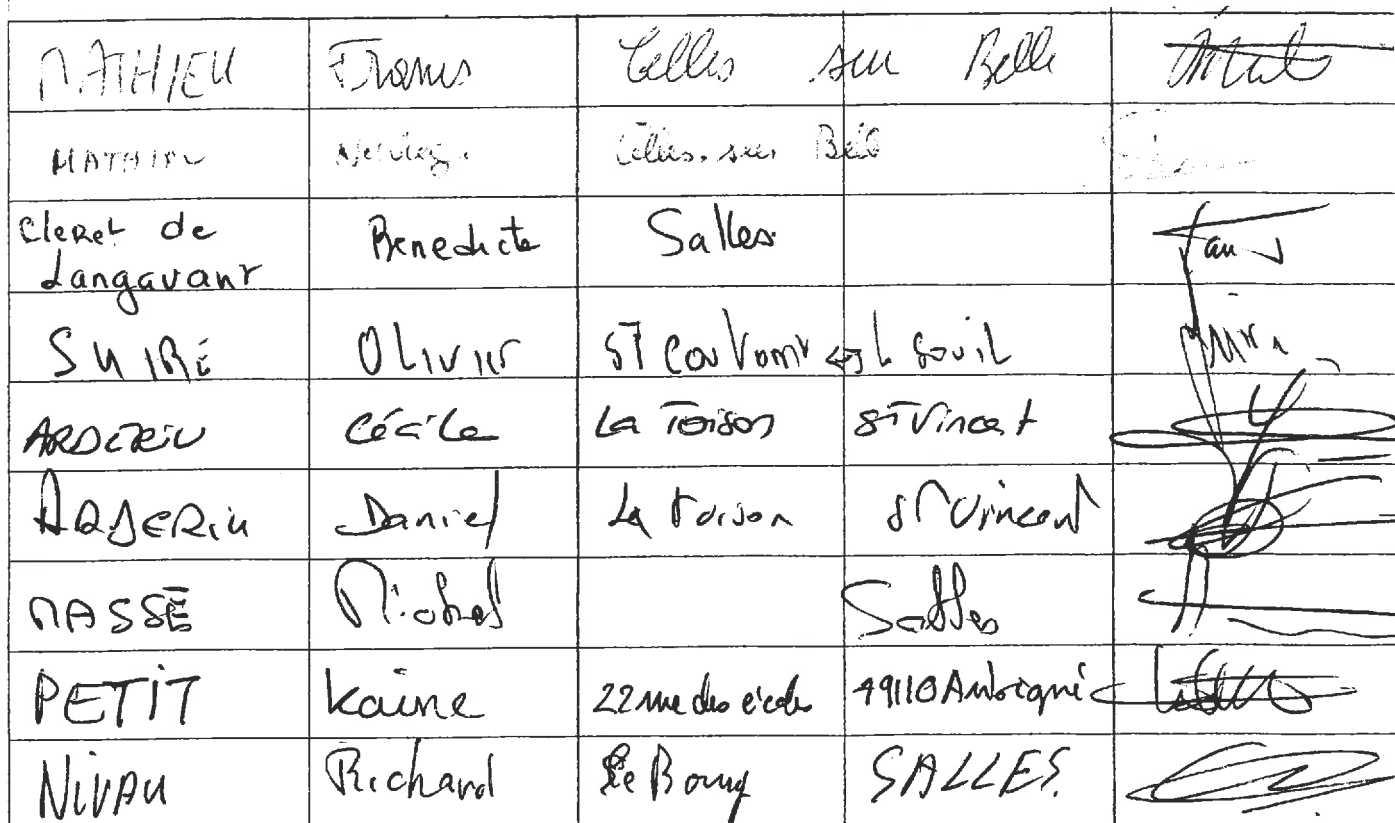 MATHIEU Celles sur Belle
MATHIEU Celles sur Belle
Cleret de Langavant Benedicte Salles
SUIRE OLIVIER ST Coutant
ARDERIU Cécile La Toison St Vincent
ARDERIU Daniel La Toison St Vincent
MASSÉ Michel Salles
PETIT Karine 22 rue des écoles 79110 Aubigné
NIVAU Richard Le Bourg SALLES.